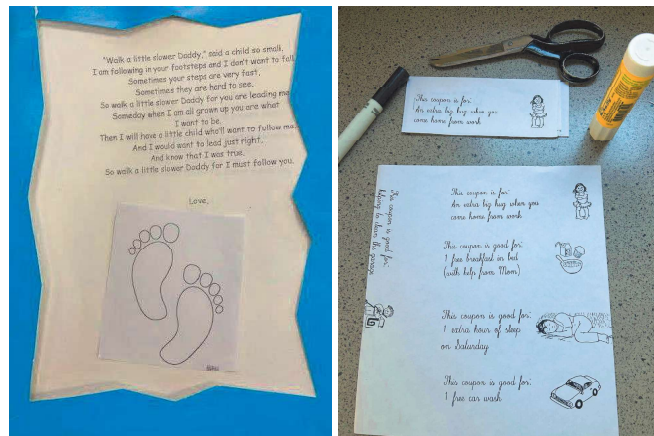 "Walk a little slower Daddy," said a child so small,
I am following in your footsteps and I don't want to fall
Sometimes your steps are very fast,
Sometimes they are hard to see,
So walk a little slower Daddy for you are leading me
Someday when I am all grown up you are what
I want to be.
Then I will have a little child who'll want to follow me,
And I would want to lead just right,
And know that I was true,
So walk a little slower Daddy for I must follow you.
Love,
This coupon is for:
An extra big hug when you
come home from work
This coupon is good for:
helping to clean the garage
This coupon is for:
An extra big hug when you
come home from work
This coupon is good for:
1 free breakfast in bed
(with help from Mom)
This coupon is good for:
1 extra hour of sleep
on Saturday
This coupon is good for:
1 free car wash